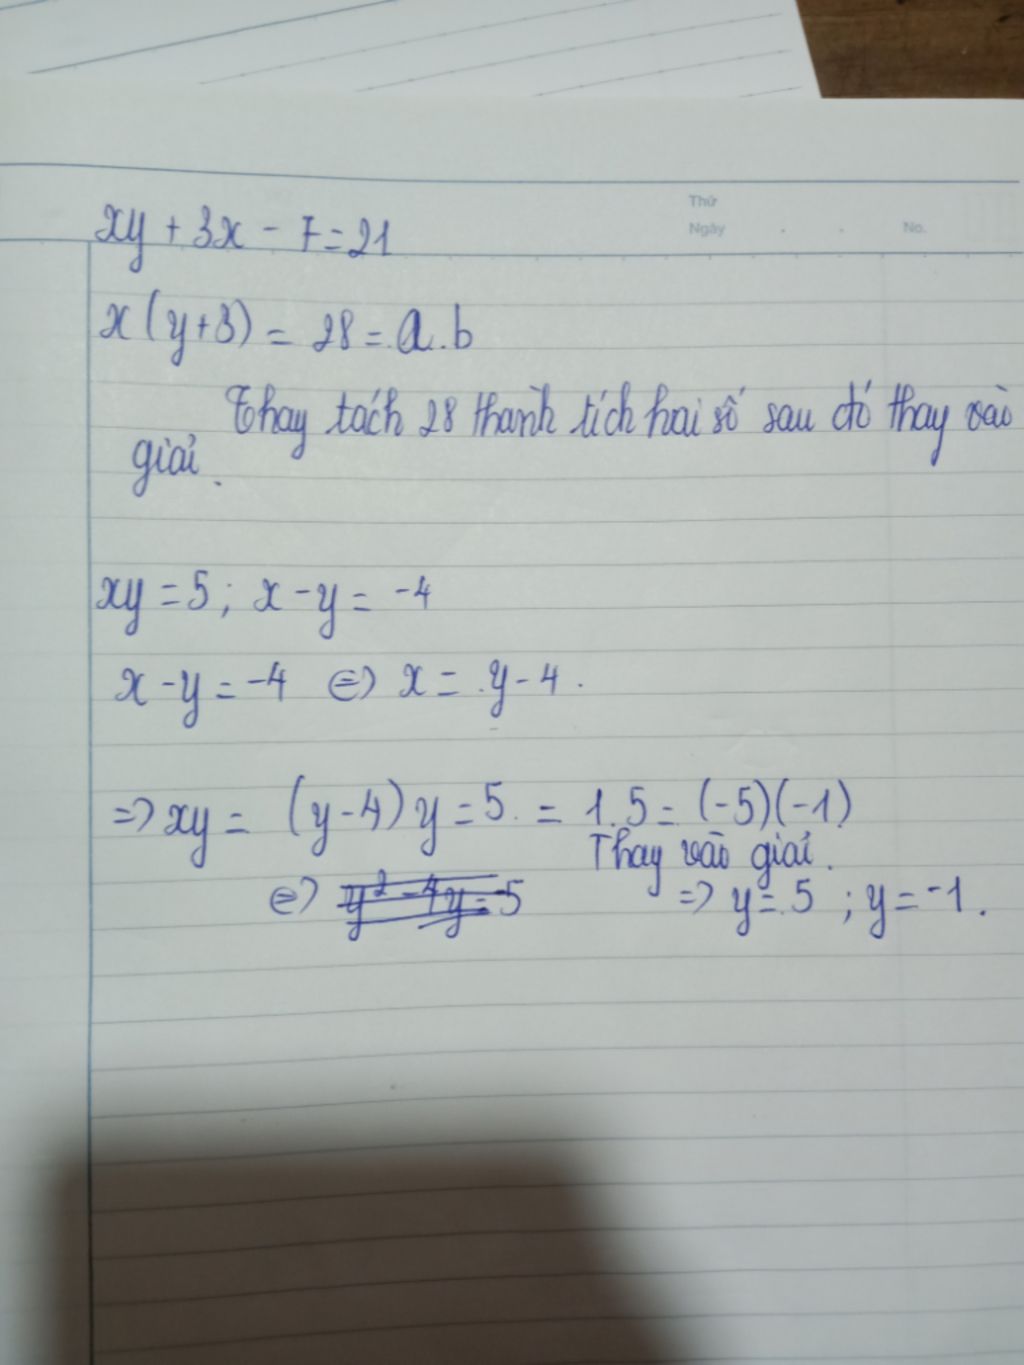 Thứ
Ngày No.
xy + 3x - 7 = 21
x(y+3) = 28 = a.b
Thay tách 28 thành tích hai số sau đó thay vào
giải.
xy = 5; x - y = -4
x - y = -4 ⇔ x = y - 4.
=> xy = (y - 4) y = 5 = 1.5 = (-5)(-1)
Thay vào giải.
⇔ y² - 4y = 5 => y = 5 ; y = -1.